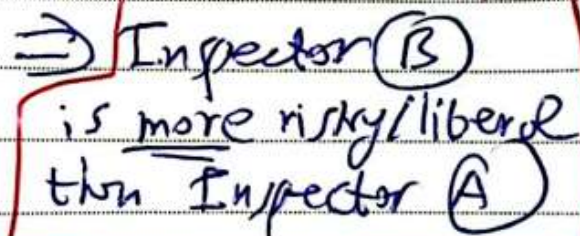 ⇒ Inspector B
is more risky/liberal
than Inspector A